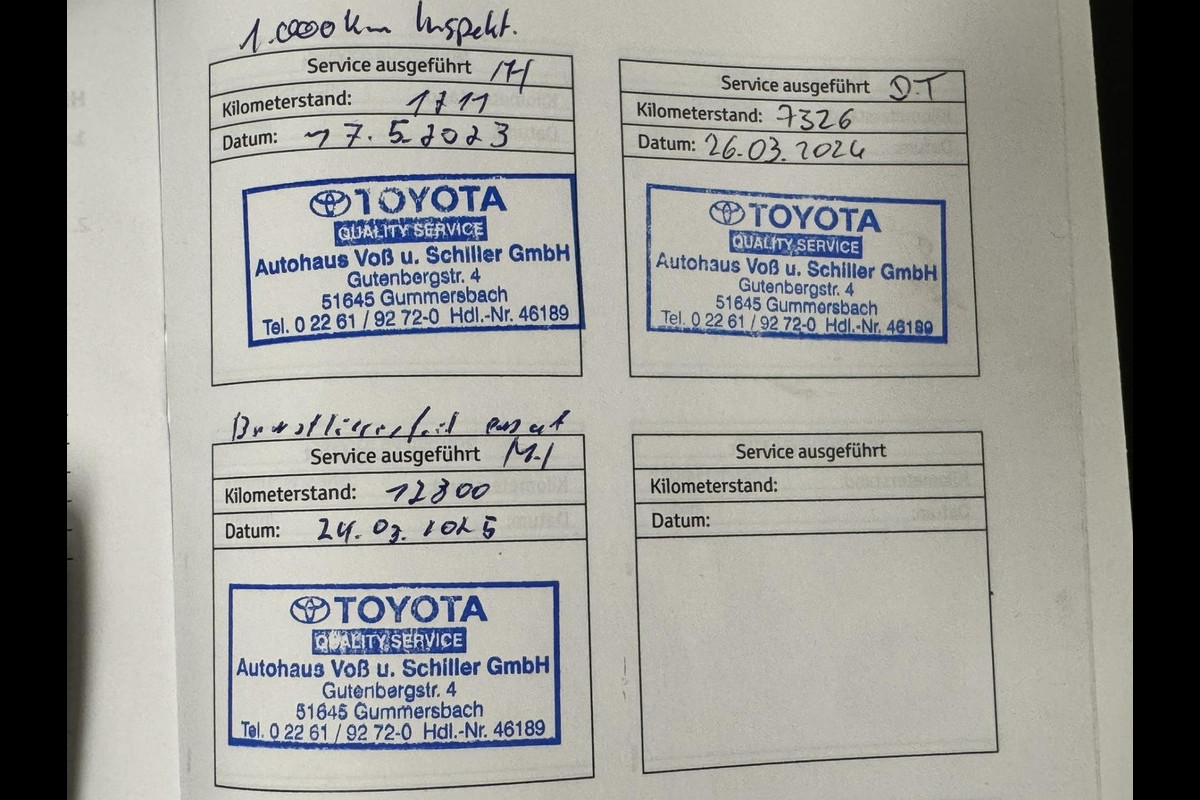 1.0000 km Inspekt.
Service ausgeführt
Kilometerstand: 1711
Datum: 17.5.2023
TOYOTA
QUALITY SERVICE
Autohaus Voß u. Schiller GmbH
Gutenbergstr. 4
51645 Gummersbach
Tel. 0 22 61 / 92 72-0 Hdl.-Nr. 46189
Service ausgeführt D.T
Kilometerstand: 7326
Datum: 26.03.2024
TOYOTA
QUALITY SERVICE
Autohaus Voß u. Schiller GmbH
Gutenbergstr. 4
51645 Gummersbach
Tel. 0 22 61 / 92 72-0 Hdl.-Nr. 46189
Service ausgeführt
Kilometerstand: 12800
Datum: 24.03.2025
TOYOTA
QUALITY SERVICE
Autohaus Voß u. Schiller GmbH
Gutenbergstr. 4
51645 Gummersbach
Tel. 0 22 61 / 92 72-0 Hdl.-Nr. 46189
Service ausgeführt
Kilometerstand:
Datum: